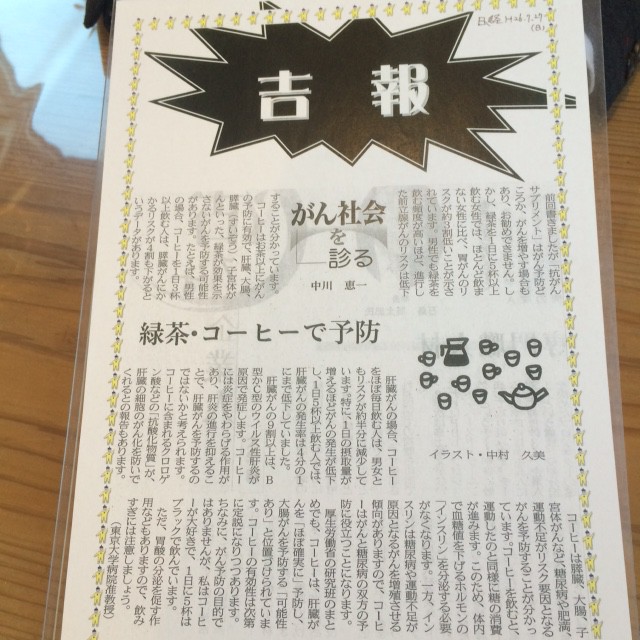 吉報
前回書きましたが「抗がん
サプリメント」はがん予防ど
ころか、がんを増やす場合も
あり、お勧めできません。し
かし、緑茶を1日に5杯以上
飲む女性では、ほとんど飲ま
ない女性に比べ、胃がんのリ
スクが約3割低いことが示さ
れています。男性でも緑茶を
飲む頻度が高いほど、進行し
た前立腺がんのリスクは低下
がん社会
を
診る
中川 恵一
することが分かっています。
コーヒーはお茶以上にがん
の予防に有効で、肝臓、大腸、
膵臓(すいぞう)、子宮体が
んといった、緑茶が効果を示
さないがんを予防する可能性
があります。たとえば、男性
の場合、コーヒーを1日3杯
以上飲む人は、膵臓がんにか
かるリスクが4割も下がると
いうデータがあります。
緑茶・コーヒーで予防
イラスト・中村 久美
肝臓がんの場合、コーヒー
をほぼ毎日飲む人は、男女と
もリスクが約半分に減少して
います。特に、1日の摂取量が
増えるほどがんの発生が低下
し、1日5杯以上飲む人では、
肝臓がんの発生率は4分の1
にまで低下していました。
肝臓がんの9割以上は、B
型かC型のウイルス性肝炎が
原因で発症します。コーヒー
には炎症をやわらげる作用が
あり、肝炎の進行を抑えるこ
とで、肝臓がんを予防するの
ではないかと考えられます。
コーヒーに含まれるクロロゲ
ン酸などの「抗酸化物質」が、
肝臓の細胞のがん化を防いで
くれるとの報告もあります。
コーヒーは膵臓、大腸、子
宮体がんなど、糖尿病や肥満、
運動不足がリスク要因となる
がんを予防することが分かっ
ています。コーヒーを飲むと
運動したのと同様に糖の消費
が進みます。このため、体内
で血糖値を下げるホルモンの
「インスリン」を分泌する必要
がなくなります。一方、イン
スリンは糖尿病や運動不足が
原因となるがんを増殖させる
傾向がありますので、コーヒ
ーはがんと糖尿病の双方の予
防に役立つことになります。
厚生労働省の研究班のまと
めでも、コーヒーは、肝臓が
んを「ほぼ確実に」予防し、
大腸がんを予防する「可能性
あり」と位置づけられていま
す。コーヒーの有効性は次第
に定説になりつつあります。
ちなみに、がん予防の目的で
はありませんが、私はコーヒ
ーが大好きで、1日に5杯は
ブラックで飲んでいます。
ただ、胃酸の分泌を促す作
用などもありますので、飲み
すぎには注意しましょう。
(東京大学病院准教授)